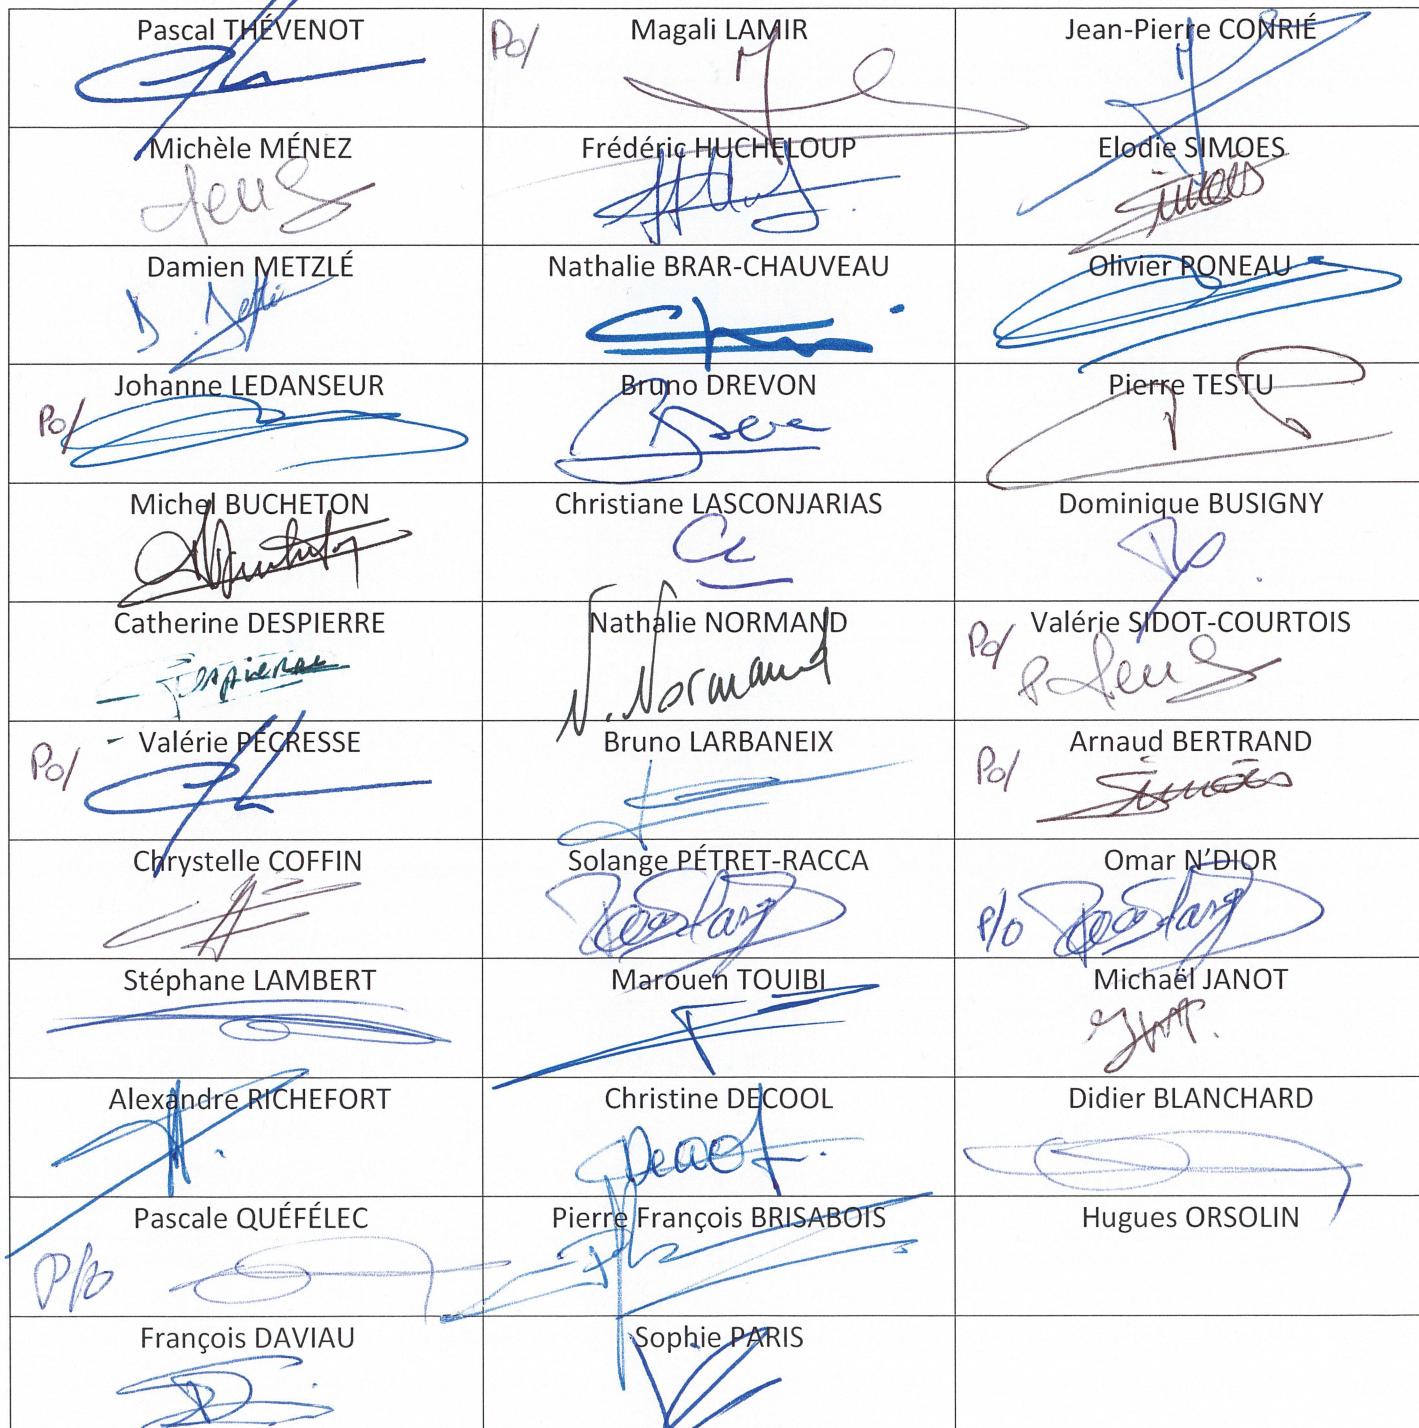 Pascal THÉVENOT
Po/ Magali LAMIR
Jean-Pierre CONRIÉ
Michèle MÉNEZ
Frédéric HUCHELOUP
Elodie SIMOES
Simoës
Damien METZLÉ
Nathalie BRAR-CHAUVEAU
Olivier PONEAU
Johanne LEDANSEUR
Po/
Bruno DREVON
Pierre TESTU
Michel BUCHETON
Christiane LASCONJARIAS
Dominique BUSIGNY
Catherine DESPIERRE
Despierre
Nathalie NORMAND
N. Normand
Po/ Valérie SIDOT-COURTOIS
Valérie PÉCRESSE
Po/
Bruno LARBANEIX
Arnaud BERTRAND
Po/ Simoës
Chrystelle COFFIN
Solange PÉTRET-RACCA
Omar N'DIOR
P/o
Stéphane LAMBERT
Marouen TOUIBI
Michaël JANOT
Alexandre RICHEFORT
Christine DECOOL
Decool
Didier BLANCHARD
Pascale QUÉFÉLEC
P/o
Pierre François BRISABOIS
Hugues ORSOLIN
François DAVIAU
Sophie PARIS